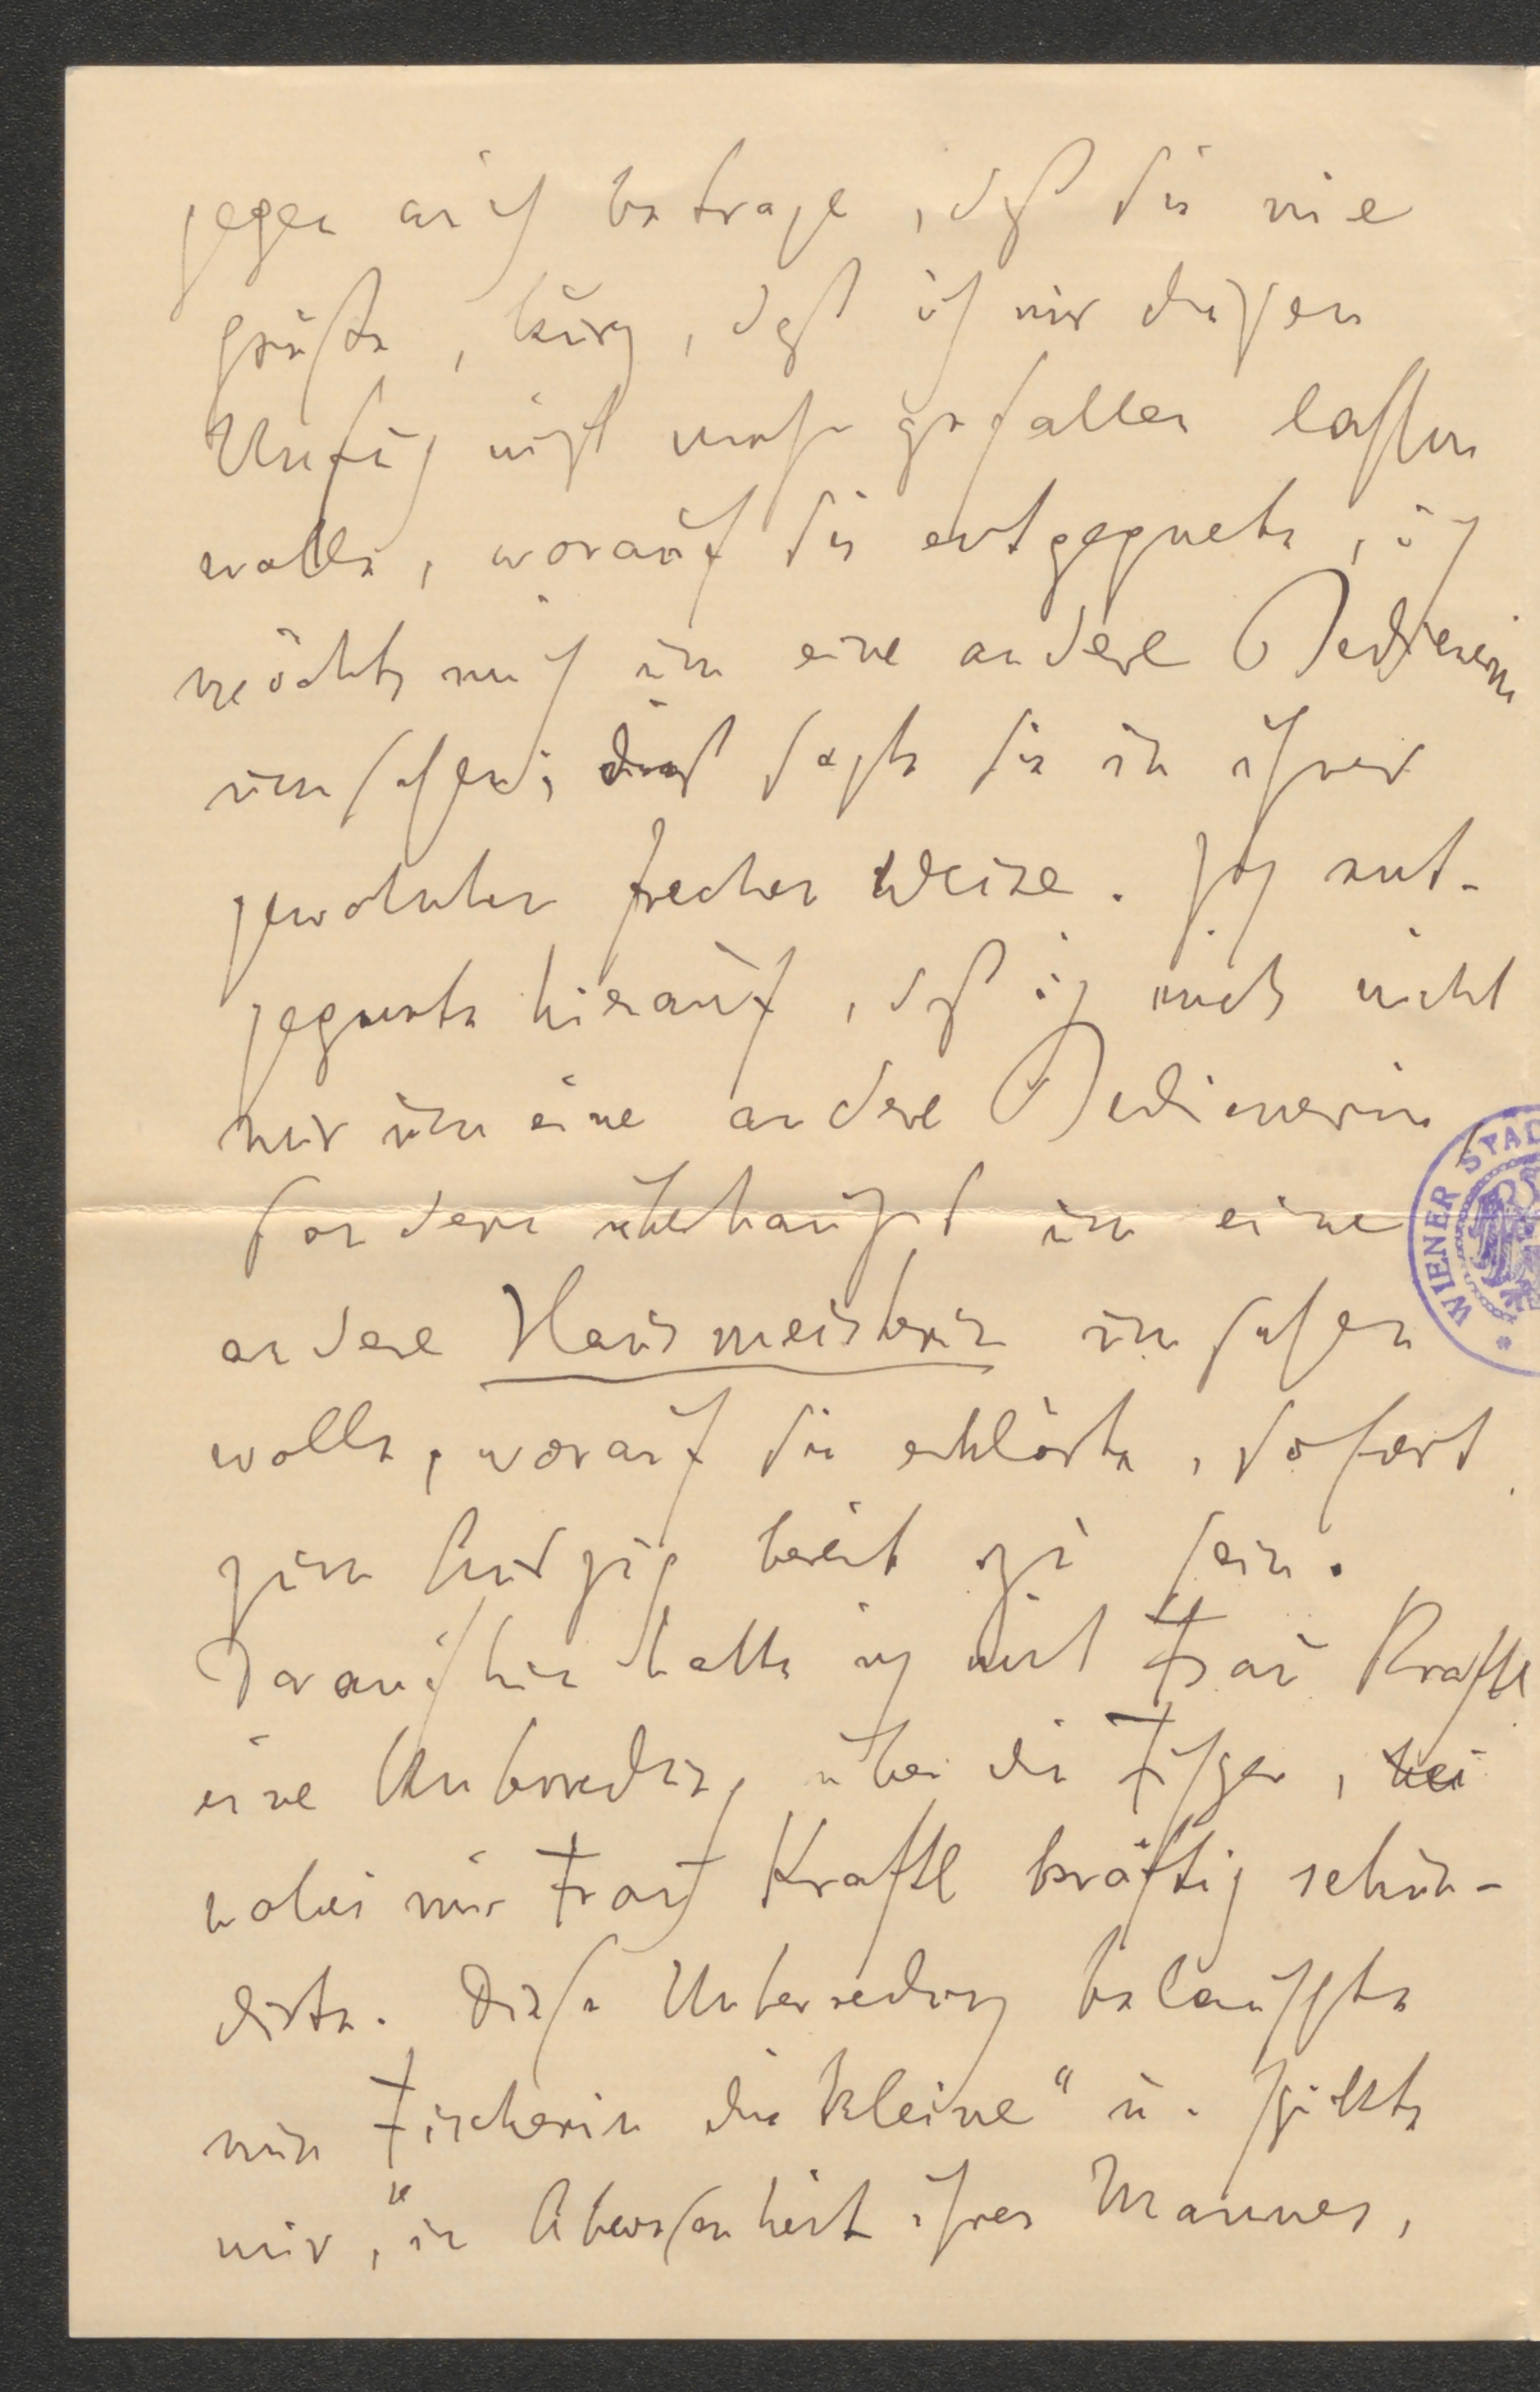 gegen mich betrage, daß sie nie
grüßte, kurz, daß ich mir diesen
Unfug nicht mehr gefallen lassen
wolle, worauf sie entgegnete, ich
möchte mich um eine andere Bedienerin
umsehen; dies sagte sie in ihrer
gewohnten frechen Weise. Ich ent-
gegnete hierauf, daß ich mich nicht
nur um eine andere Bedienerin,
sondern überhaupt um eine
andere Hausmeisterin umsehen
wolle, worauf sie erklärte, sofort
zum Auszug bereit zu sein.
Daraufhin hatte ich mit Frau Kraftl
eine Unterredung über die Fischer, bei
wobei mir Frau Kraftl kräftig sekun-
dirte. Diese Unterredung belauschte
nun Fischerin „die Kleine" u. spielte
mir, in Abwesenheit ihres Mannes,
WIENER STAD